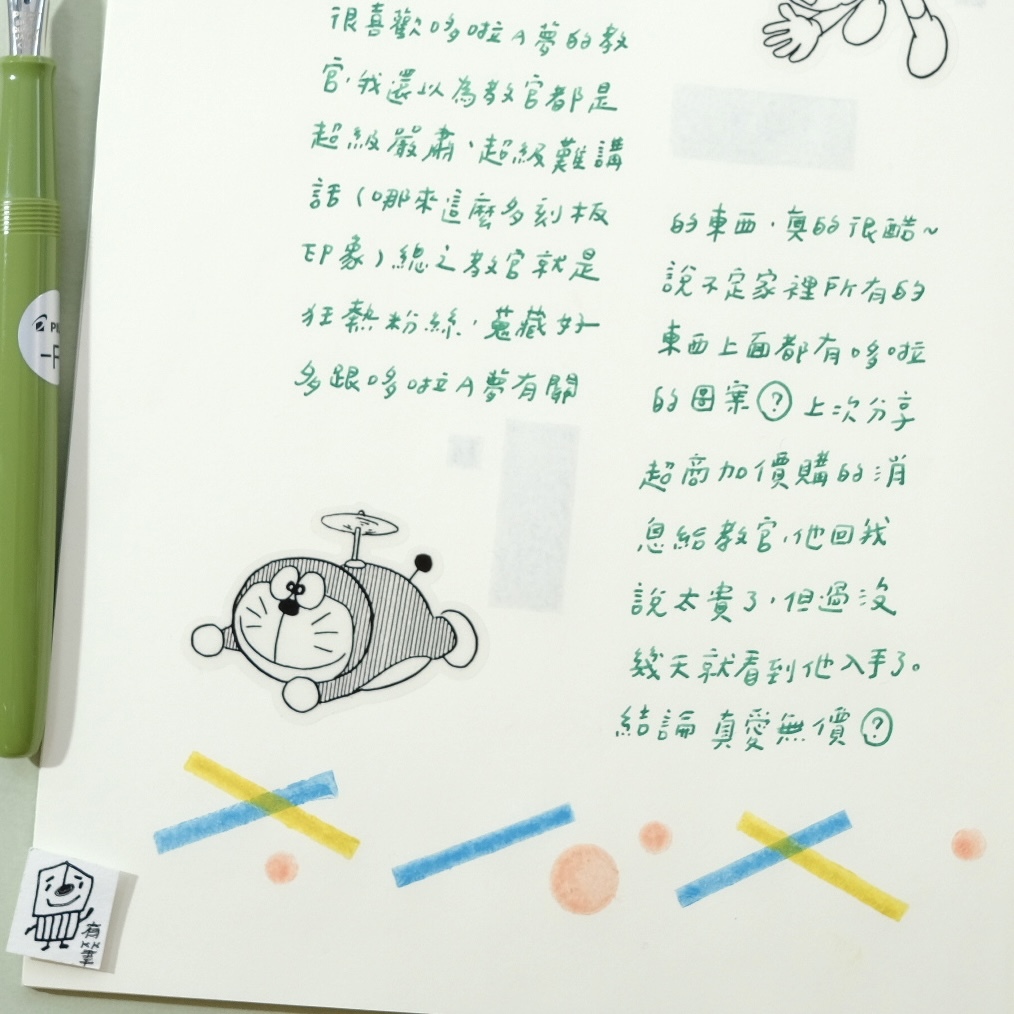 很喜歡哆啦A夢的教
官,我還以為教官都是
超級嚴肅、超級難講
話(哪來這麼多刻板
印象)總之教官就是
狂熱粉絲,蒐藏好
多跟哆啦A夢有關
的東西,真的很酷~
說不定家裡所有的
東西上面都有哆啦
的圖案?上次分享
超商加價購的消
息給教官,他回我
說太貴了,但過沒
幾天就看到他入手了。
結論 真愛無價?
有筆